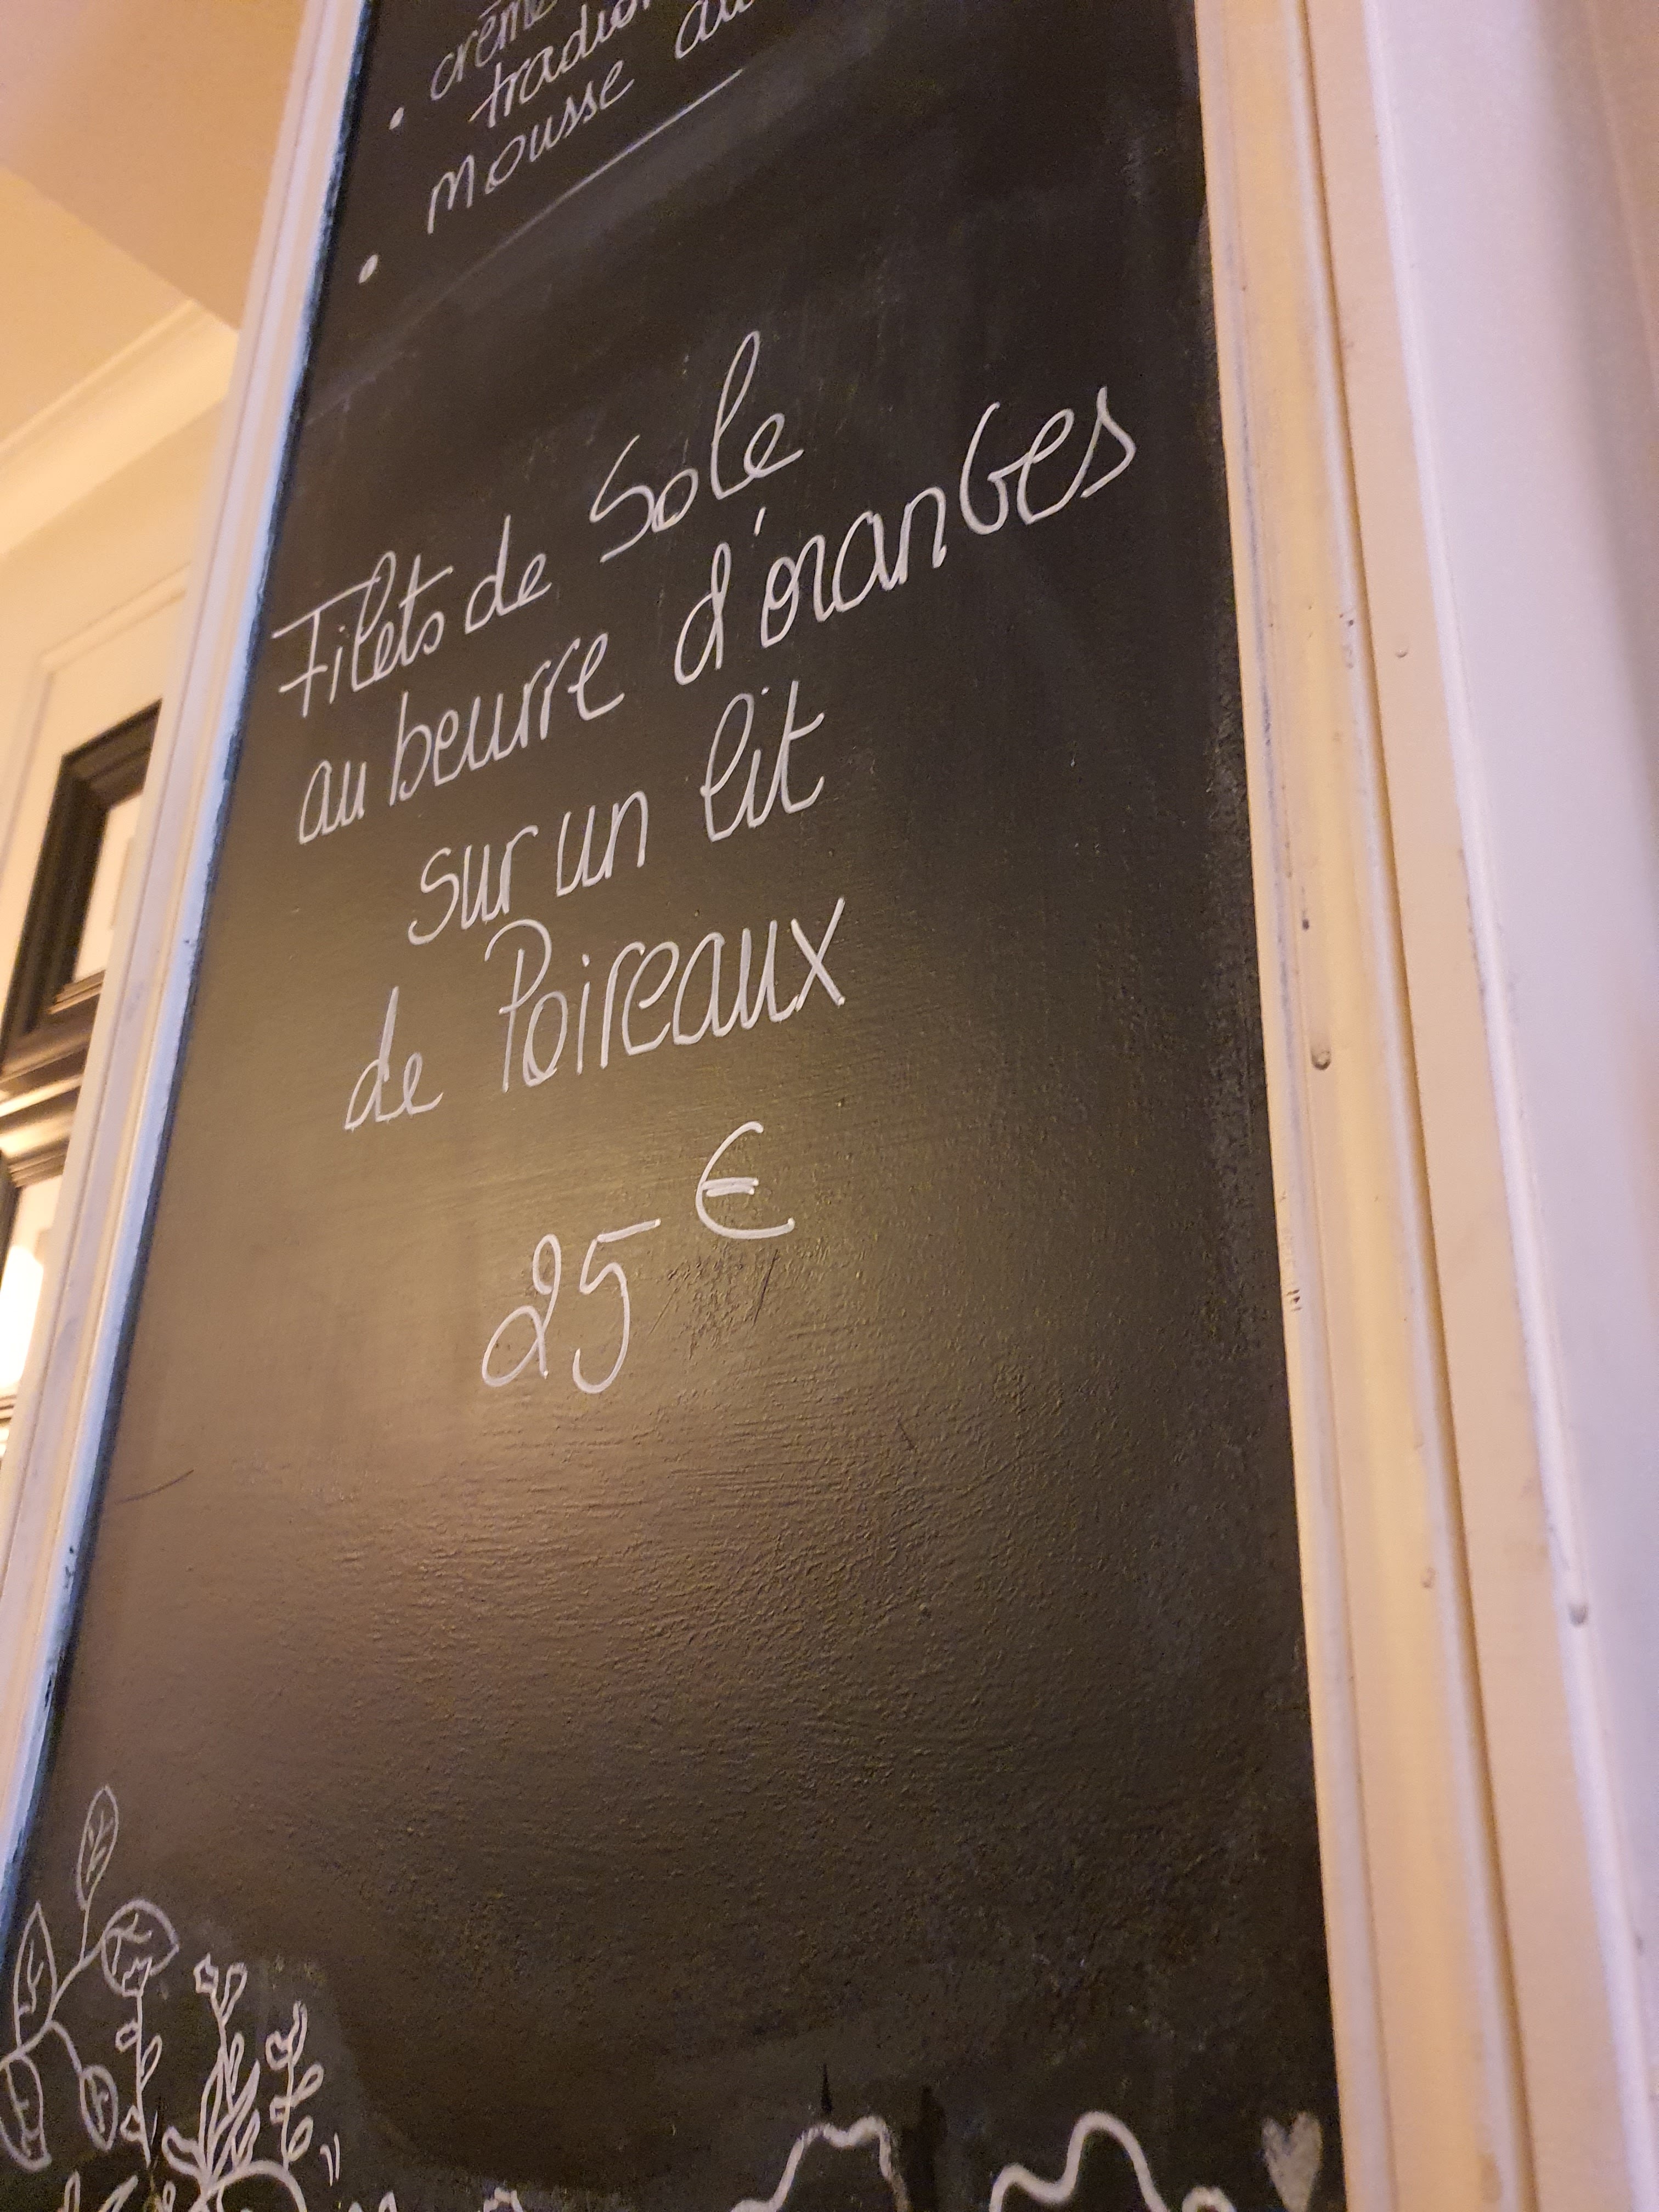 crème
mousse
Filets de Sole
au beurre d'oranGes
sur un lit
de Poireaux
25 €